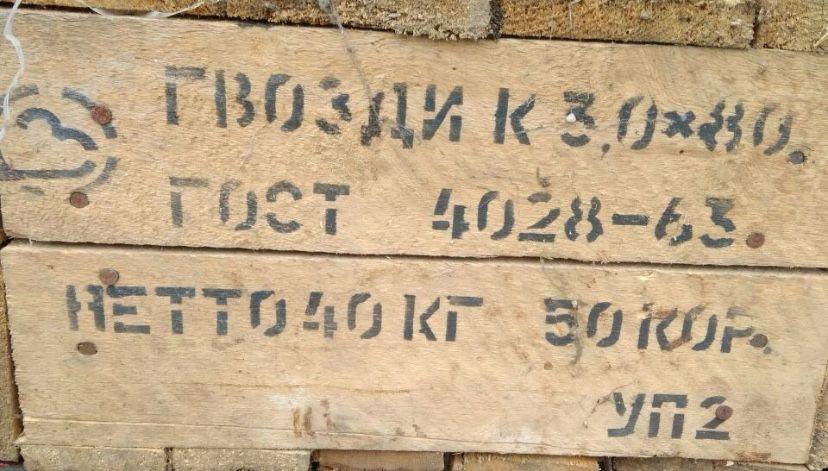 ГВОЗДИ К 3,0×80.
ГОСТ 4028-63.
НЕТТО 40 КГ 50 КОР.
УП2